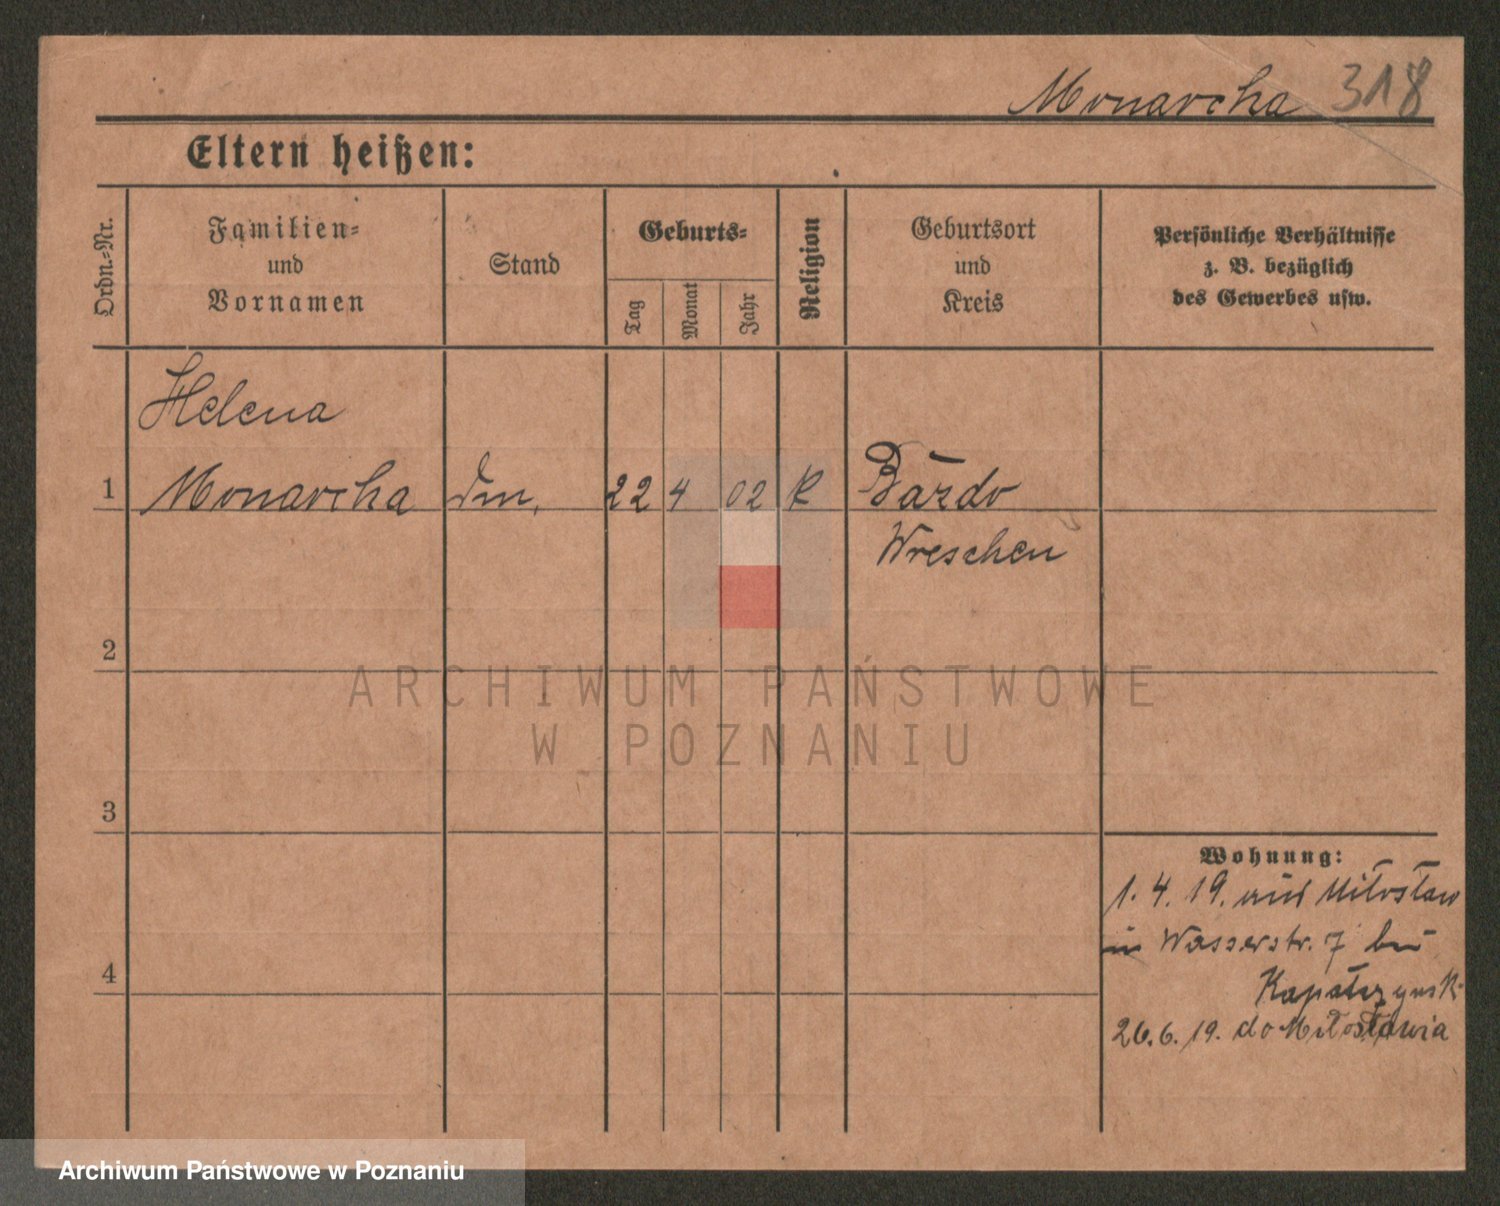 Monarcha 318
Eltern heißen:
Ordn.-Nr.
Familien-
und
Vornamen
Stand
Geburts-
Tag
Monat
Jahr
Religion
Geburtsort
und
Kreis
Persönliche Verhältnisse
z. B. bezüglich
des Gewerbes usw.
Helena
1 Monarcha 22 4 02 K Bardo
Wreschen
2
3
4
Wohnung:
1. 4. 19. aus Miłosław
in Wasserstr. 7 bei
26. 6. 19. do Miłosławia
ARCHIWUM PAŃSTWOWE
W POZNANIU
Archiwum Państwowe w Poznaniu